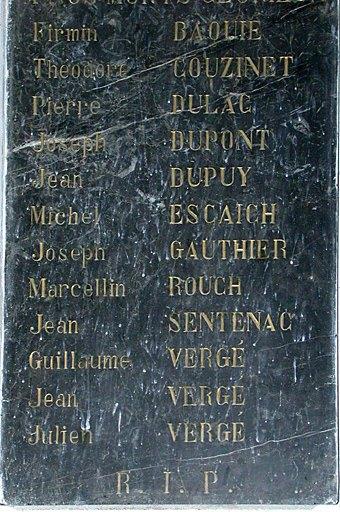 Firmin BAQUIÉ
Théodore COUZINET
Pierre DULAC
Joseph DUPONT
Jean DUPUY
Michel ESCAICH
Joseph GAUTHIER
Marcellin ROUCH
Jean SENTENAC
Guillaume VERGÉ
Jean VERGÉ
Julien VERGÉ
R. I. P.